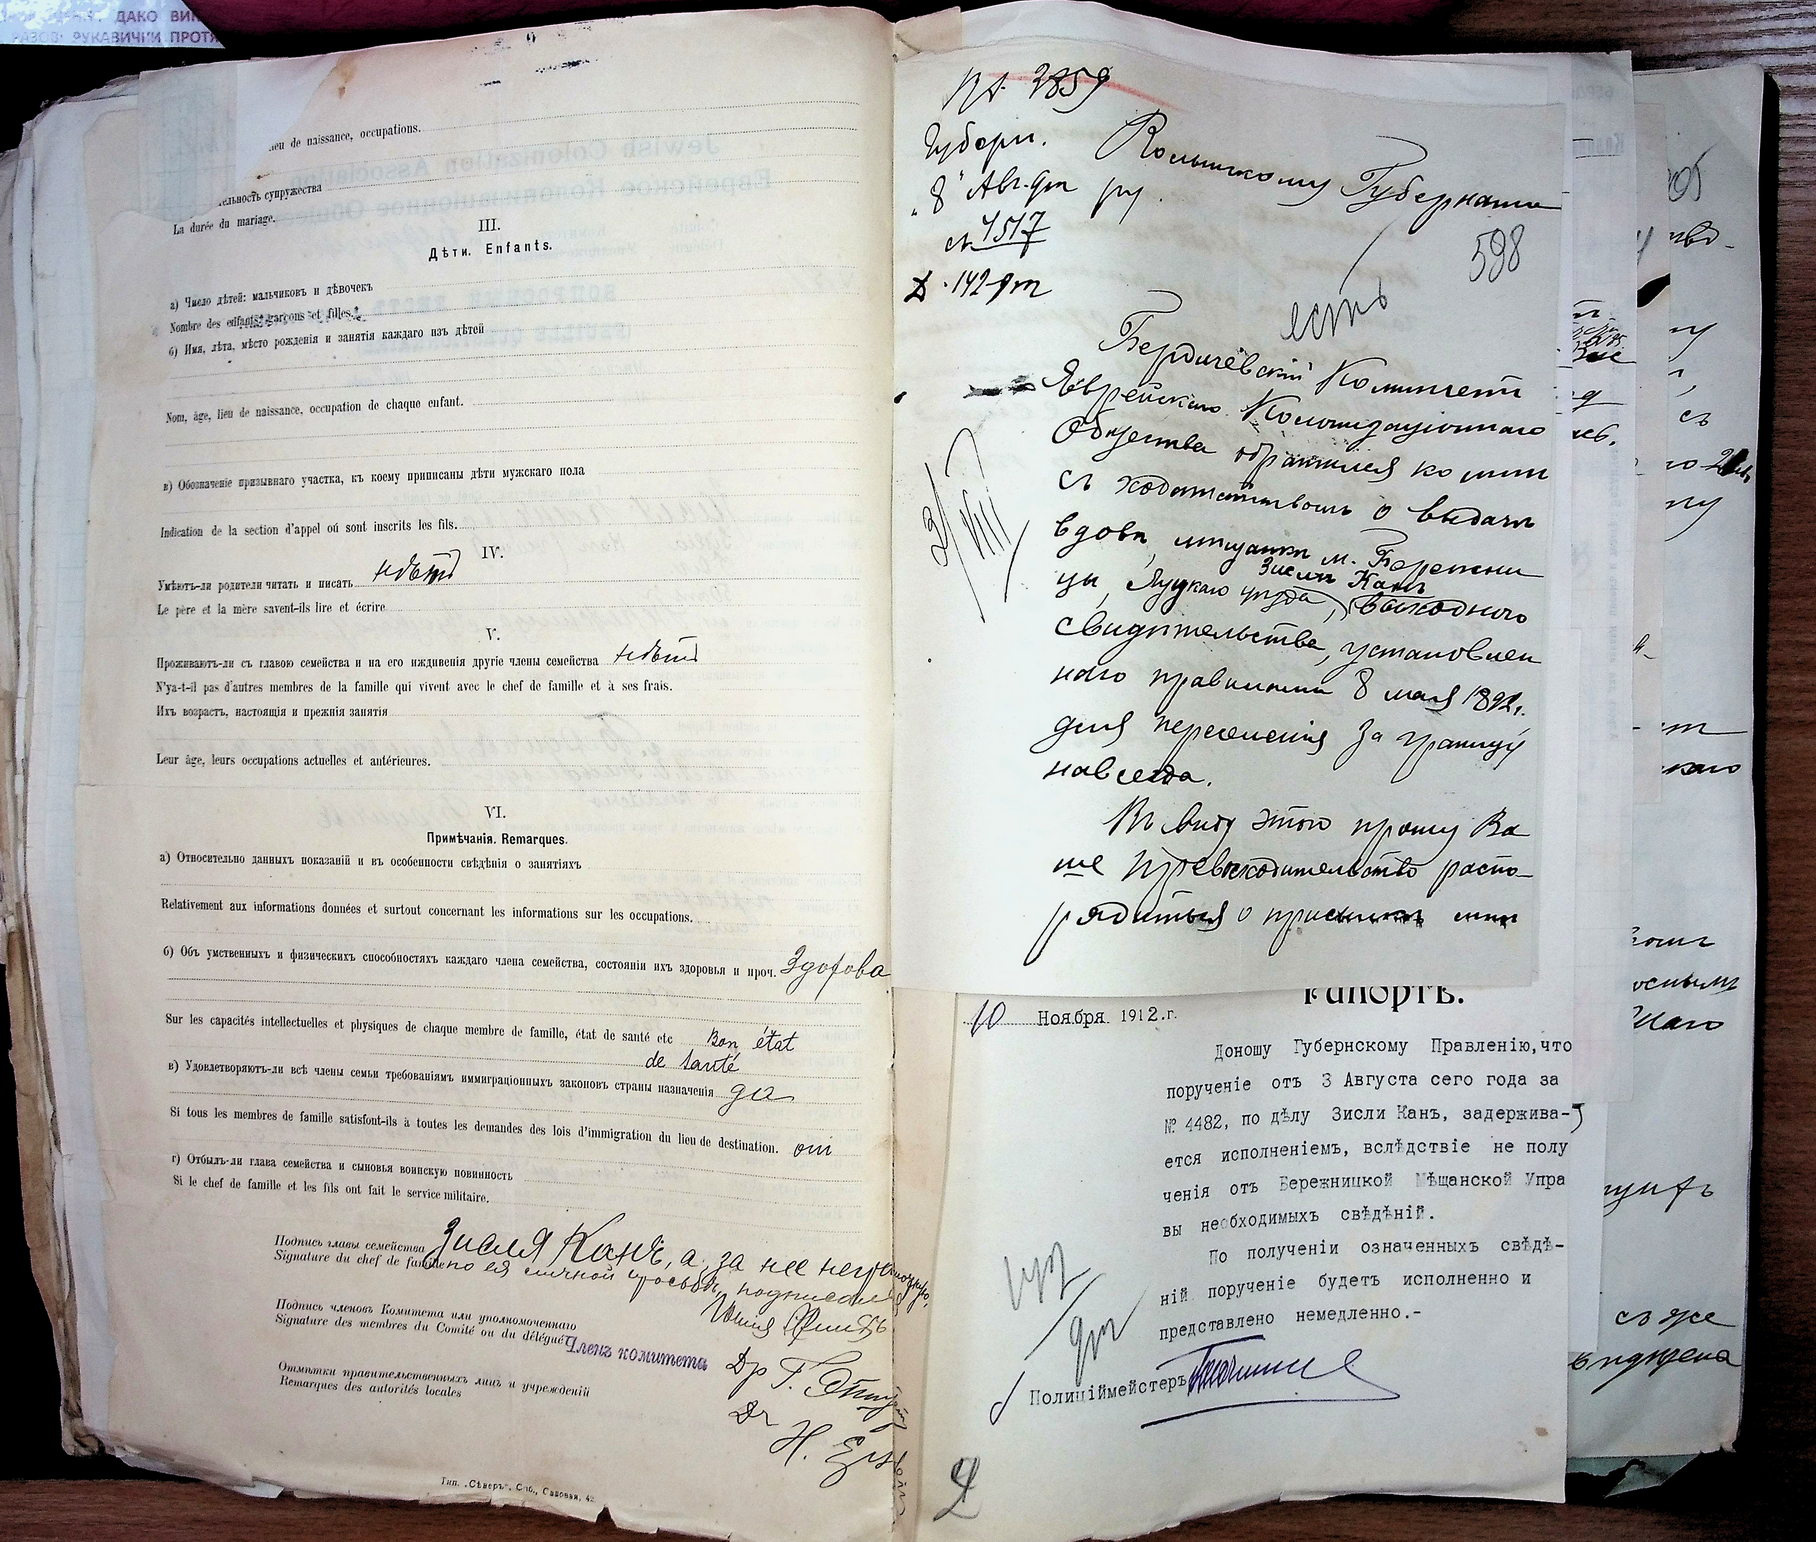 ДАКО
РУКАВИЧКИ
lieu de naissance, occupations.
супружества
La durée du mariage.
III.
Дѣти. Enfants.
а) Число дѣтей: мальчиковъ и дѣвочекъ
Nombre des enfants: garçons et filles.
б) Имя, лѣта, мѣсто рожденія и занятія каждаго изъ дѣтей
Nom, âge, lieu de naissance, occupation de chaque enfant.
в) Обозначеніе призывнаго участка, къ коему приписаны дѣти мужскаго пола
Indication de la section d'appel oú sont inscrits les fils.
IV.
Умѣютъ-ли родители читать и писать нѣтъ
Le père et la mère savent-ils lire et écrire
V.
Проживаютъ-ли съ главою семейства и на его иждивенія другіе члены семейства нѣтъ
N'ya-t-il pas d'autres membres de la famille qui vivent avec le chef de famille et à ses frais.
Ихъ возрастъ, настоящія и прежнія занятія
Leur âge, leurs occupations actuelles et antérieures.
VI.
Примѣчанія. Remarques.
а) Относительно данныхъ показаній и въ особенности свѣдѣнія о занятіяхъ
Relativement aux informations données et surtout concernant les informations sur les occupations.
б) Объ умственныхъ и физическихъ способностяхъ каждаго члена семейства, состояніи ихъ здоровья и проч. Здорова
Sur les capacités intellectuelles et physiques de chaque membre de famille, état de santé etc Bon état
de santé
в) Удовлетворяютъ-ли всѣ члены семьи требованіямъ иммиграціонныхъ законовъ страны назначенія да
Si tous les membres de famille satisfont-ils à toutes les demandes des lois d'immigration du lieu de destination. oui
г) Отбылъ-ли глава семейства и сыновья воинскую повинность
Si le chef de famille et les fils ont fait le service militaire.
Подпись главы семейства Зисля Канъ, а за нее неграмотную,
Signature du chef de famille по ея личной просьбѣ, подписался
Подпись членовъ Комитета или уполномоченнаго
Signature des membres du Comité ou du délégué Членъ комитета
Др Г.
Отмѣтки правительственныхъ лицъ и учрежденій
Remarques des autorités locales
Dr
Н.
Тип. „Сѣверъ", Спб., Садовая, 42
№ 3859
Губерн.
"8" Авг. 9т
4517
142-9т
Волынскому Губернато
ру.
598
есть
Бердичевскій Комитетъ
Еврейскаго Колонизаціоннаго
Общества обратился ко мнѣ
съ ходатайствомъ о выдачѣ
вдовѣ, мѣщанкѣ м. Бережни
Зислѣ Канъ
цы, Луцкаго уѣзда, выходного
свидѣтельства, установлен
наго правилами 8 мая 1892г.
для переселенія за границу
навсегда.
Въ виду этого прошу Ва
ше Превосходительство распо-
рядиться о присылкѣ мнѣ
3/VIII
Рапортъ.
10 Ноября 1912.г.
Доношу Губернскому Правленію,что
порученіе отъ 3 Августа сего года за
№ 4482, по дѣлу Зисли Канъ, задержива-
ется исполненіемъ, вслѣдствіе не полу
ченія отъ Бережницкой Мѣщанской Упра
вы необходимыхъ свѣдѣній.
По полученіи означенныхъ свѣдѣ-
ній порученіе будетъ исполненно и
представлено немедленно.-
Полиціймейстеръ